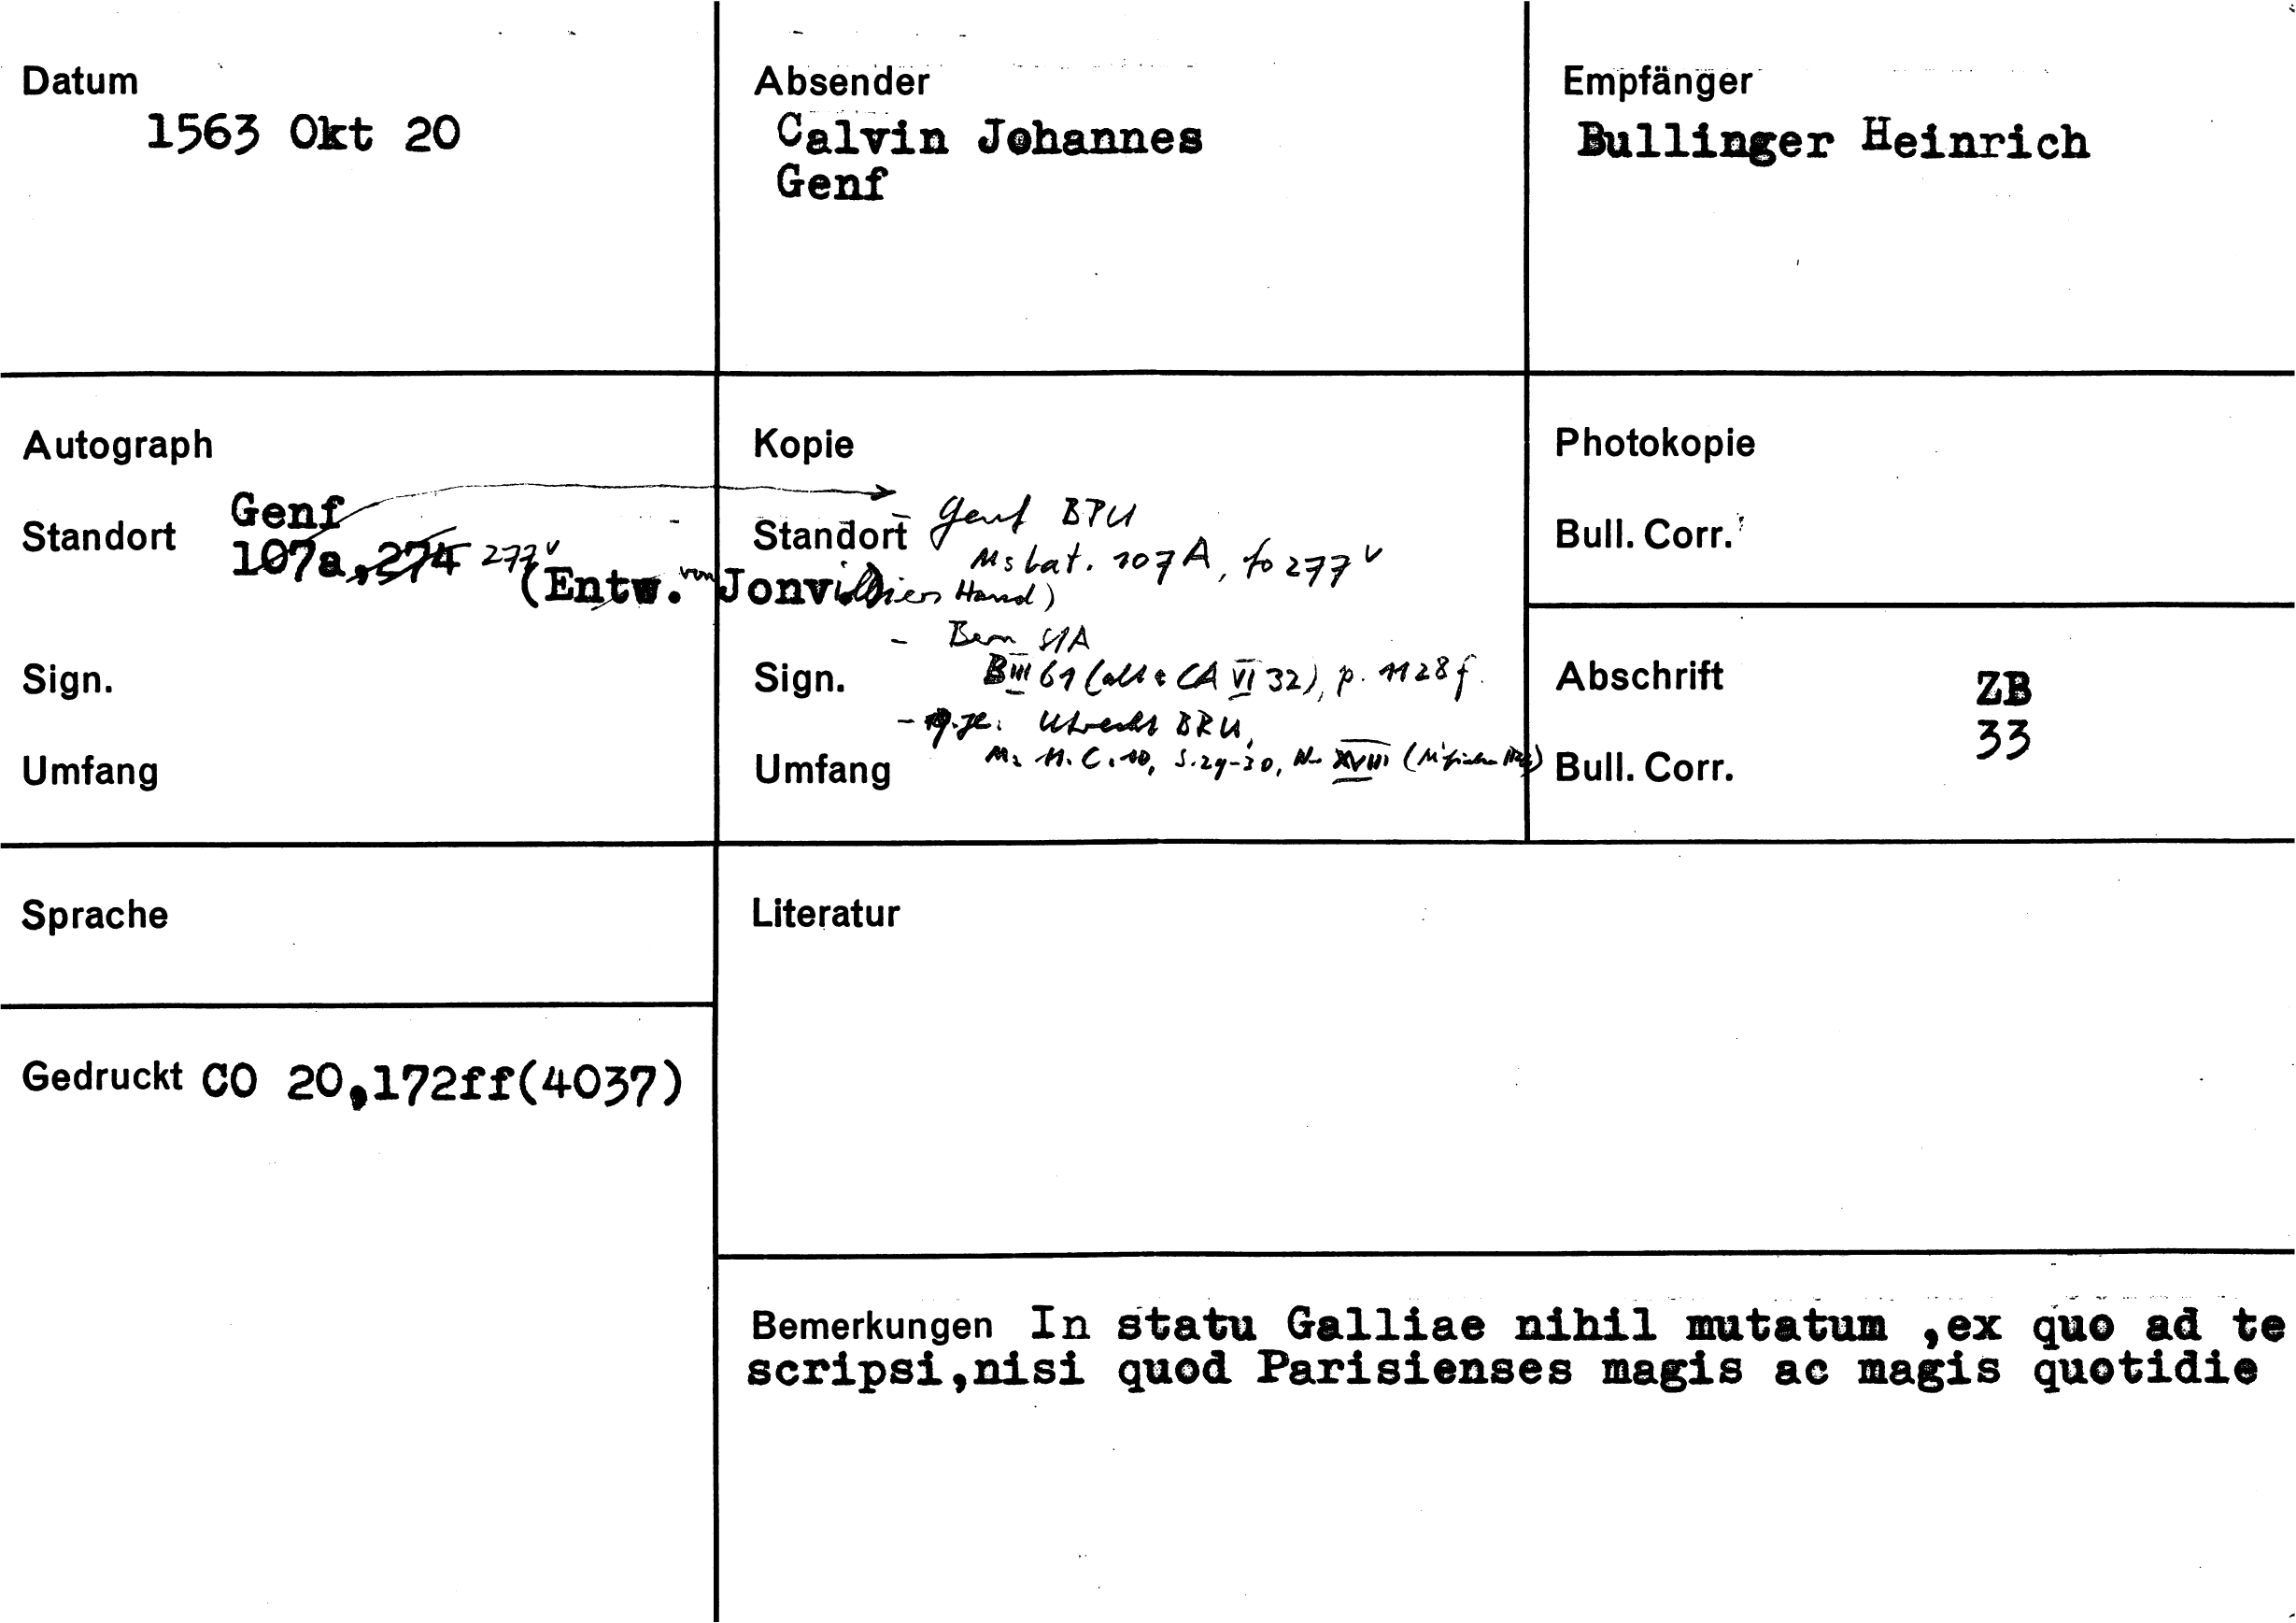 Datum
1563 Okt 20
Absender
Calvin Johannes
Genf
Empfänger
Bullinger Heinrich
Autograph
Standort Genf
107a,274 277v
(Entw. von Jonvilliers Hand)
Sign.
Umfang
Kopie
Standort Genf BPU
Ms Lat. 107A, fo 277v
- Bern StA
Sign. B III 61 (alt: CA VI 32), p. 1128f.
- Utrecht BRU,
Umfang Ms 11. C. 10, S. 29-30, Nr XVIII
Photokopie
Bull. Corr.
Abschrift ZB
33
Bull. Corr.
Sprache
Literatur
Gedruckt CO 20,172ff(4037)
Bemerkungen In statu Galliae nihil mutatum ,ex quo ad te
scripsi,nisi quod Parisienses magis ac magis quotidie